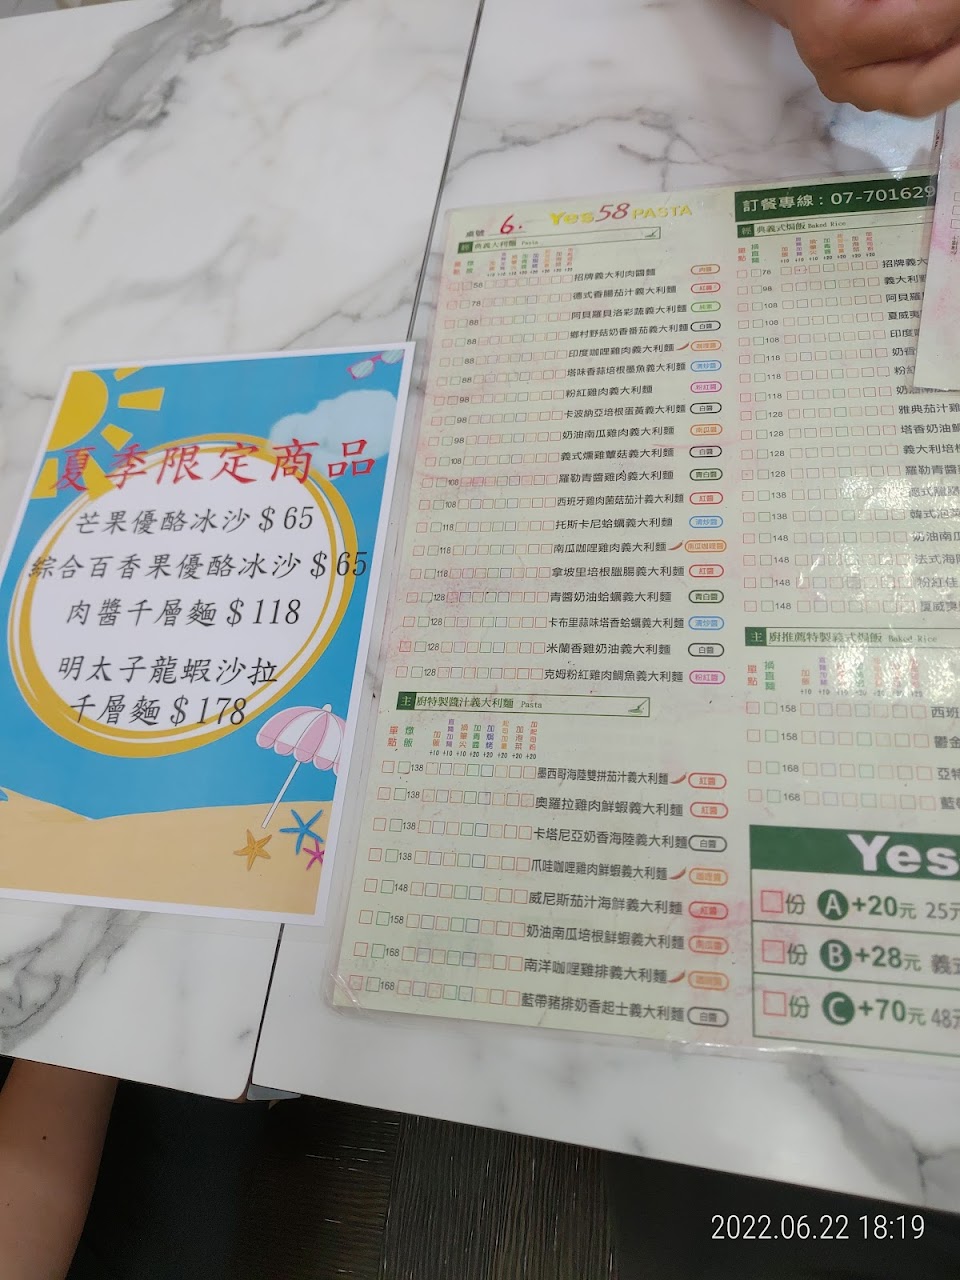 夏季限定商品
芒果優酪冰沙$65
綜合百香果優酪冰沙$65
肉醬千層麵$118
明太子龍蝦沙拉
千層麵$178
Yes58PASTA
桌號 6.
經典義大利麵 Pasta
58 招牌義大利肉醬麵 肉醬
78 德式香腸茄汁義大利麵 紅醬
88 阿貝羅貝洛彩蔬義大利麵
88 鄉村野菇奶香番茄義大利麵 白醬
88 印度咖哩雞肉義大利麵 咖哩醬
塔味香蒜培根墨魚義大利麵 清炒醬
98 粉紅雞肉義大利麵 粉紅醬
98 卡波納亞培根蛋黃義大利麵 白醬
98 奶油南瓜雞肉義大利麵 南瓜醬
108 義式燻雞蕈菇義大利麵 白醬
108 羅勒青醬雞肉義大利麵 青白醬
108 西班牙雞肉菌菇茄汁義大利麵 紅醬
118 托斯卡尼蛤蠣義大利麵 清炒醬
118 南瓜咖哩雞肉義大利麵 南瓜咖哩醬
118 拿坡里培根臘腸義大利麵 紅醬
128 青醬奶油蛤蠣義大利麵 青白醬
128 卡布里蒜味塔香蛤蠣義大利麵 清炒醬
128 米蘭香雞奶油義大利麵 白醬
128 克姆粉紅雞肉鯛魚義大利麵 粉紅醬
主廚特製醬汁義大利麵 Pasta
單點
+10 +10 +10 +20 +20 +20 +20 +20
138 墨西哥海陸雙拼茄汁義大利麵 紅醬
138 奧羅拉雞肉鮮蝦義大利麵 紅醬
138 卡塔尼亞奶香海陸義大利麵 白醬
138 爪哇咖哩雞肉鮮蝦義大利麵 咖哩醬
148 威尼斯茄汁海鮮義大利麵 紅醬
158 奶油南瓜培根鮮蝦義大利麵 南瓜醬
168 南洋咖哩雞排義大利麵 咖哩醬
168 藍帶豬排奶香起士義大利麵 白醬
訂餐專線：07-701629
經典義式焗飯 Baked Rice
78 招牌義大
98 義大利
108 阿貝羅
108 夏威夷
108 印度
118 奶香
118 粉紅
118 奶油南
128 雅典茄汁雞
128 塔香奶油
128 義大利培根
128 羅勒青醬
138
138 韓式泡菜
148 奶油南
148 法式海
148 粉紅佳
148 夏威夷
主廚推薦特製義式焗飯 Baked Rice
單點
158 西班
158 鬱金
168 亞特
168 藍
Yes
份 A+20元 25元
份 B+28元 義式
份 C+70元 48元
2022.06.22 18:19